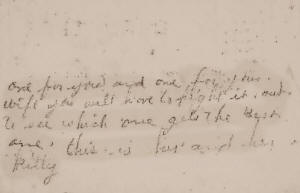 one for you and one for your
wife you will have to fight it out
to see which one gets the Best
one. this is his and his
Billy